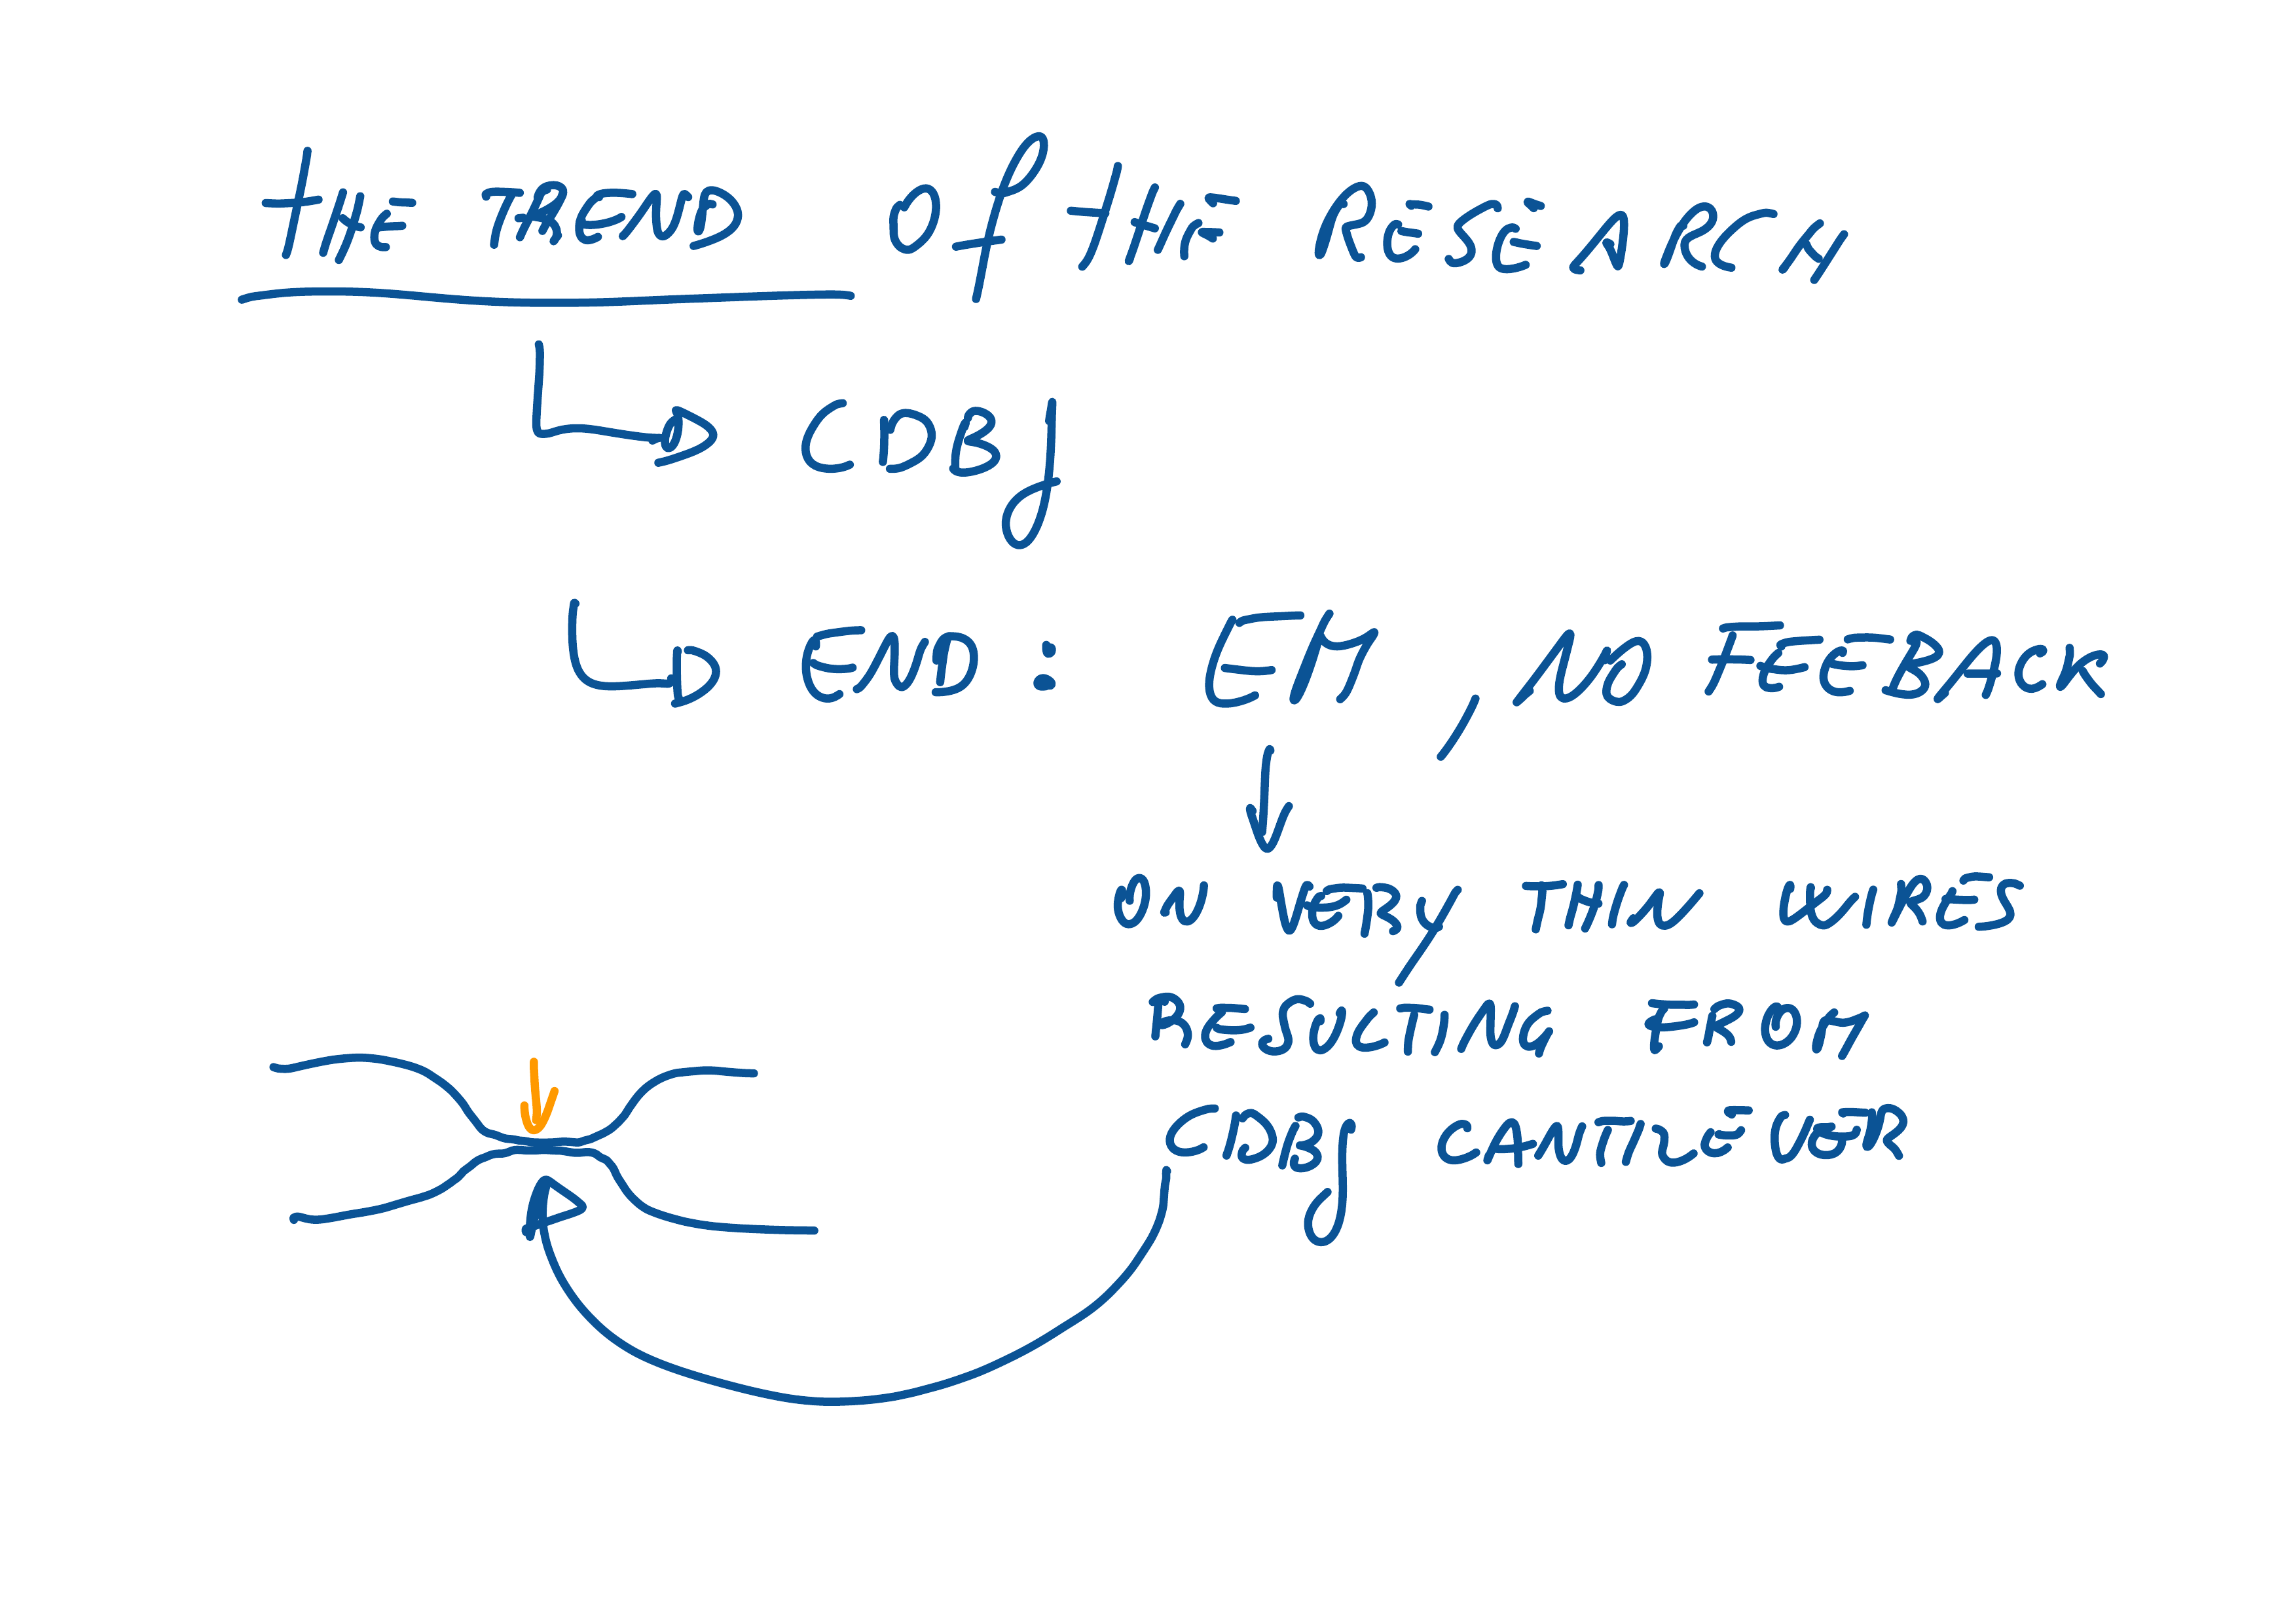 THE TREND Of THE RESEARCH
CDBJ
END: EM, NO FEEBACK
ON VERY THIN WIRES
RESULTING FROM
CDBJ CANTILEVER